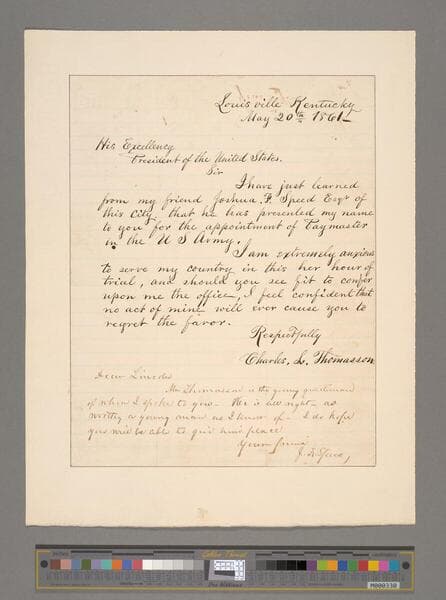 Louisville Kentucky
May 20th 1861
His Excellency
President of the United States.
Sir
I have just learned
from my friend Joshua. F. Speed Esqr of
this City, that he has presented my name
to you for the appointment of Paymaster
in the U S Army.
I am extremely anxious
to serve my country in this her hour of
trial, and should you see fit to confer
upon me the office, I feel confident that
no act of mine will ever cause you to
regret the favor.
Respectfully
Charles. L. Thomasson
Dear Lincoln
Mr Thomasson is the young gentleman
of whom I spoke to you - He is all right - as
worthy a young man as I know of - I do hope
you will be able to give him a place
Your friend
J. F. Speed
M000330